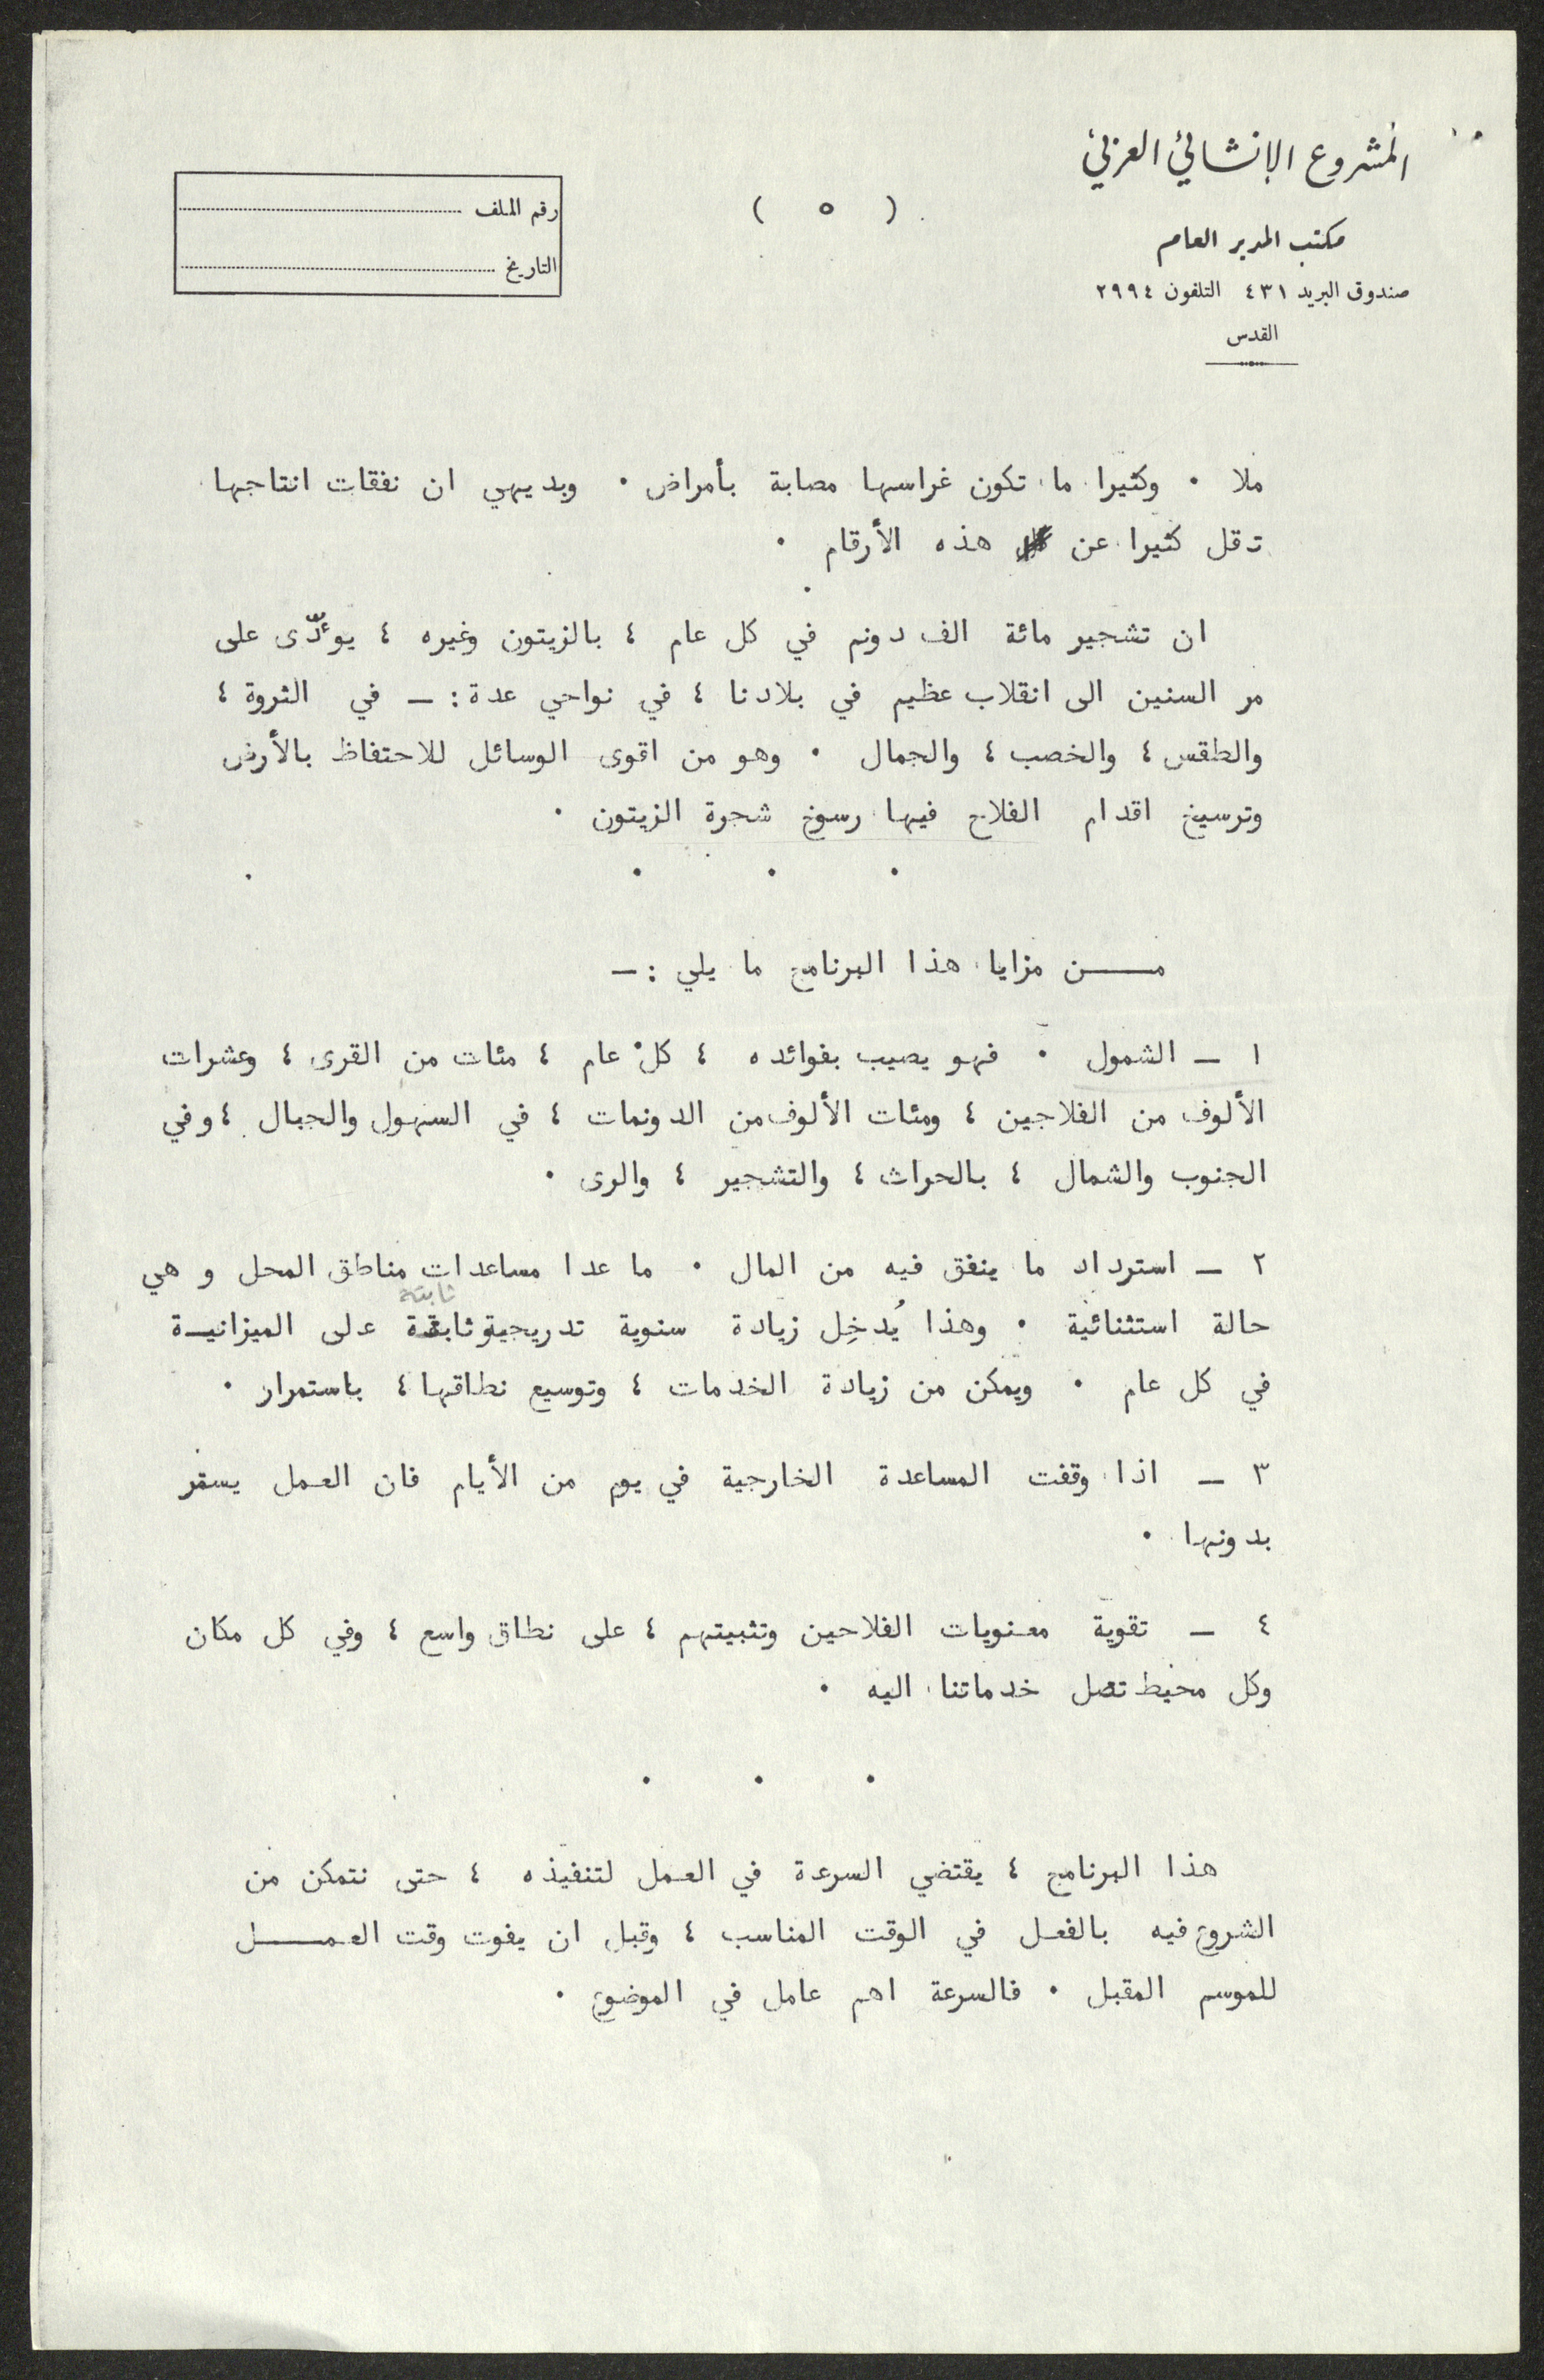 المشروع الإنشائي العربي
مكتب المدير العام
صندوق البريد ٤٣١ التلفون ٢٩٩٤
القدس
( ٥ )
رقم الملف
التاريخ
ملا ٠ وكثيرا ما تكون غراسها مصابة بأمراض ٠ وبديهي ان نفقات انتاجها
تقل كثيرا عن هذه الأرقام ٠
ان تشجير مائة الف دونم في كل عام ، بالزيتون وغيره ، يوءدّى على
مر السنين الى انقلاب عظيم في بلادنا ، في نواحي عدة : ـ في الثروة ،
والطقس ، والخصب ، والجمال ٠ وهو من اقوى الوسائل للاحتفاظ بالأرض
وترسيخ اقدام الفلاح فيها رسوخ شجرة الزيتون ٠
٠ ٠ ٠
مـــن مزايا هذا البرنامج ما يلي : ـ
١ ـ الشمول ٠ فهو يصيب بفوائده ، كل عام ، مئات من القرى ، وعشرات
الألوف من الفلاحين ، ومئات الألوف من الدونمات ، في السهول والجبال ، وفي
الجنوب والشمال ، بالحراث ، والتشجير ، والرى ٠
٢ ـ استرداد ما ينفق فيه من المال ٠ ما عدا مساعدات مناطق المحل و هي
ثابتة
حالة استثنائية ٠ وهذا يُدخِل زيادة سنوية تدريجية وثابتة على الميزانيـة
في كل عام ٠ ويمكن من زيادة الخدمات ، وتوسيع نطاقها ، باستمرار ٠
٣ ـ اذا وقفت المساعدة الخارجية في يوم من الأيام فان العمل يستمر
بدونها ٠
٤ ـ تقوية معنويات الفلاحين وتثبيتهم ، على نطاق واسع ، وفي كل مكان
وكل محيط تصل خدماتنا اليه ٠
٠ ٠ ٠
هذا البرنامج ، يقتضي السرعة في العمل لتنفيذه ، حتى نتمكن من
الشروع فيه بالفعل في الوقت المناسب ، وقبل ان يفوت وقت العمـــل
للموسم المقبل ٠ فالسرعة اهم عامل في الموضوع ٠